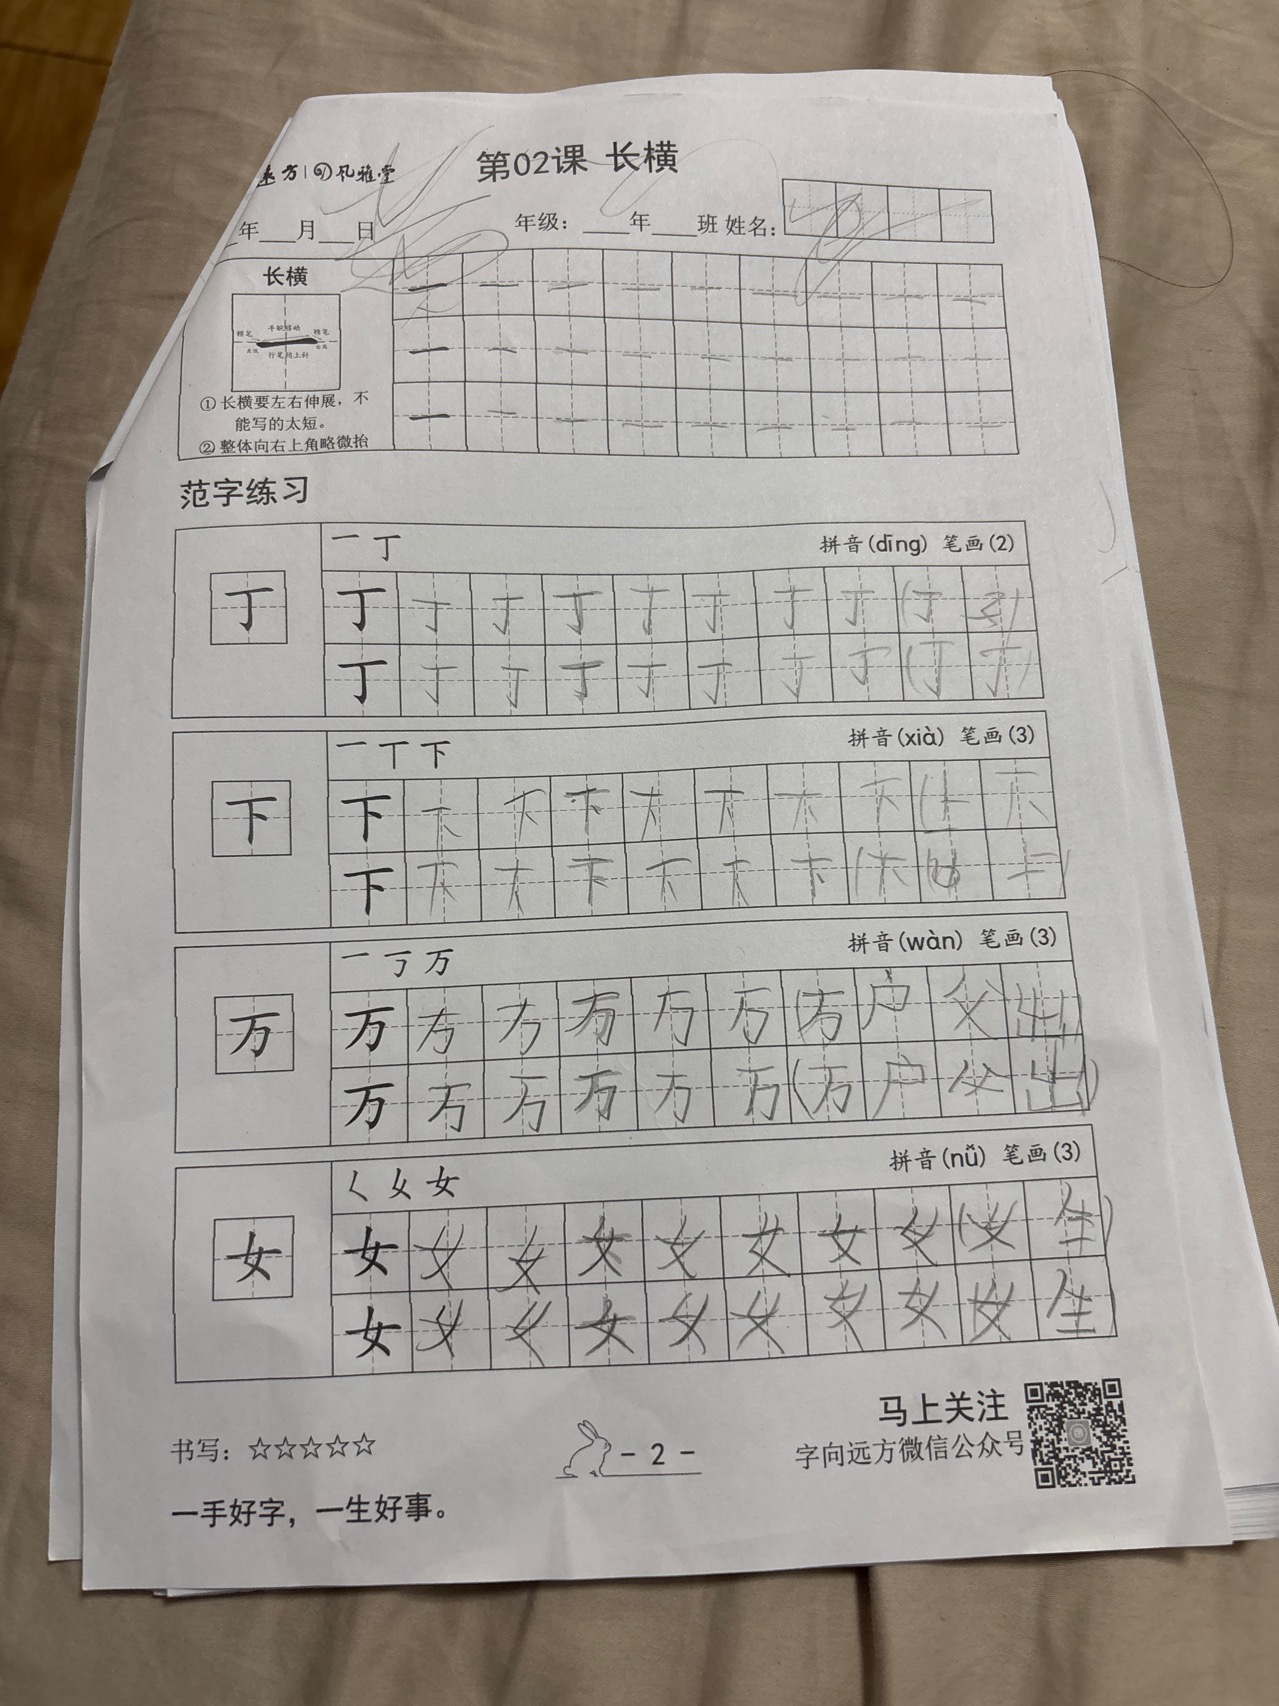 远方 风雅堂
第02课 长横
年___月___日 年级：___年___班 姓名：
长横
平稳移动
顿笔 顿笔
行笔稍上斜
①长横要左右伸展，不
能写的太短。
②整体向右上角略微抬
一 一 一 一 一 一 一 一 一
一 一 一 一 一 一 一 一 一
一 一 一 一 一 一 一 一 一
范字练习
一 丁 拼音(dīng) 笔画(2)
丁
丁 丁 丁 丁 丁 丁 丁 丁 (丁
丁 丁 丁 丁 丁 丁 丁 丁 (丁 丁)
一 丅 下 拼音(xià) 笔画(3)
下
下 下 下 下 下 下 下 下
下 下 下 下 下 下 下
一 丁 万 拼音(wàn) 笔画(3)
万
万 万 万 万 万 万 (万 户 父 出)
万 万 万 万 万 万 (万 户 父 出)
く 女 女 拼音(nǚ) 笔画(3)
女
女 女 女 女 女 女 女 女 (女 生)
女 女 女 女 女 女 女 女 女 生)
马上关注
书写：☆☆☆☆☆ - 2 - 字向远方微信公众号
一手好字，一生好事。